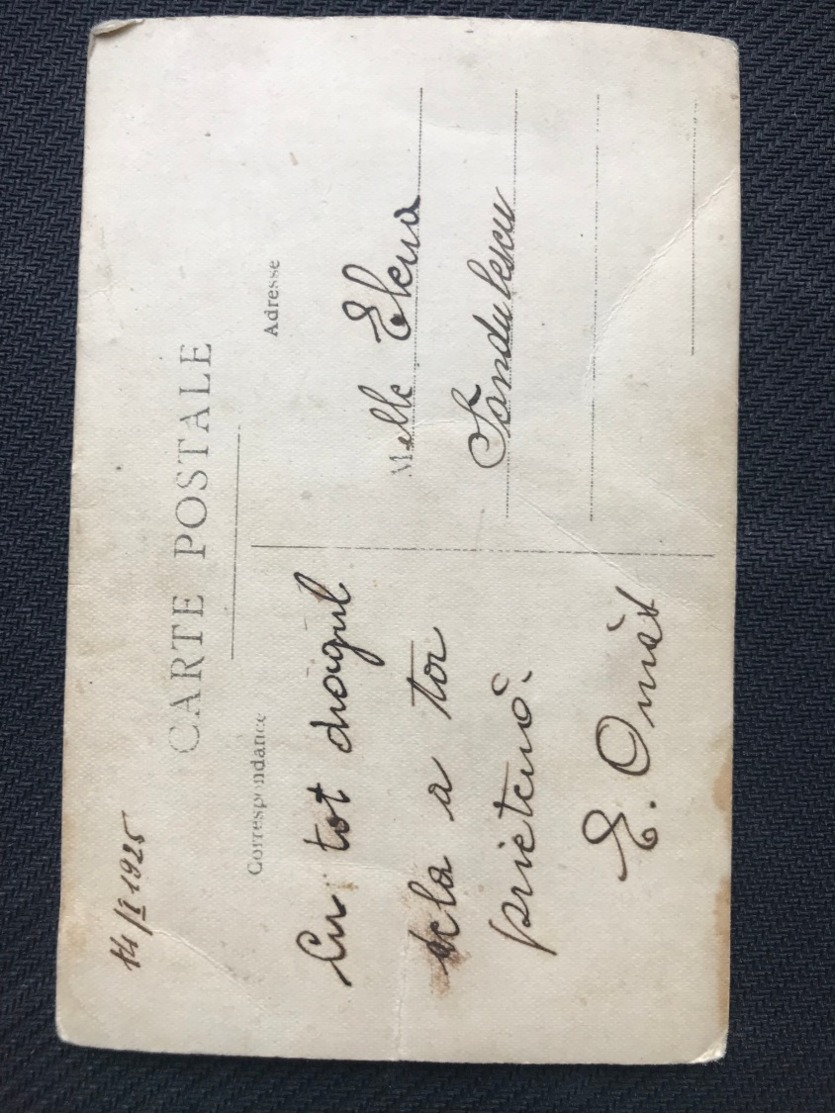 14/I 1925
CARTE POSTALE
Correspondance
Cu tot dragul
dela a ta
prietenă.
E. Omăt
Adresse
Melle Elena
Sandulescu